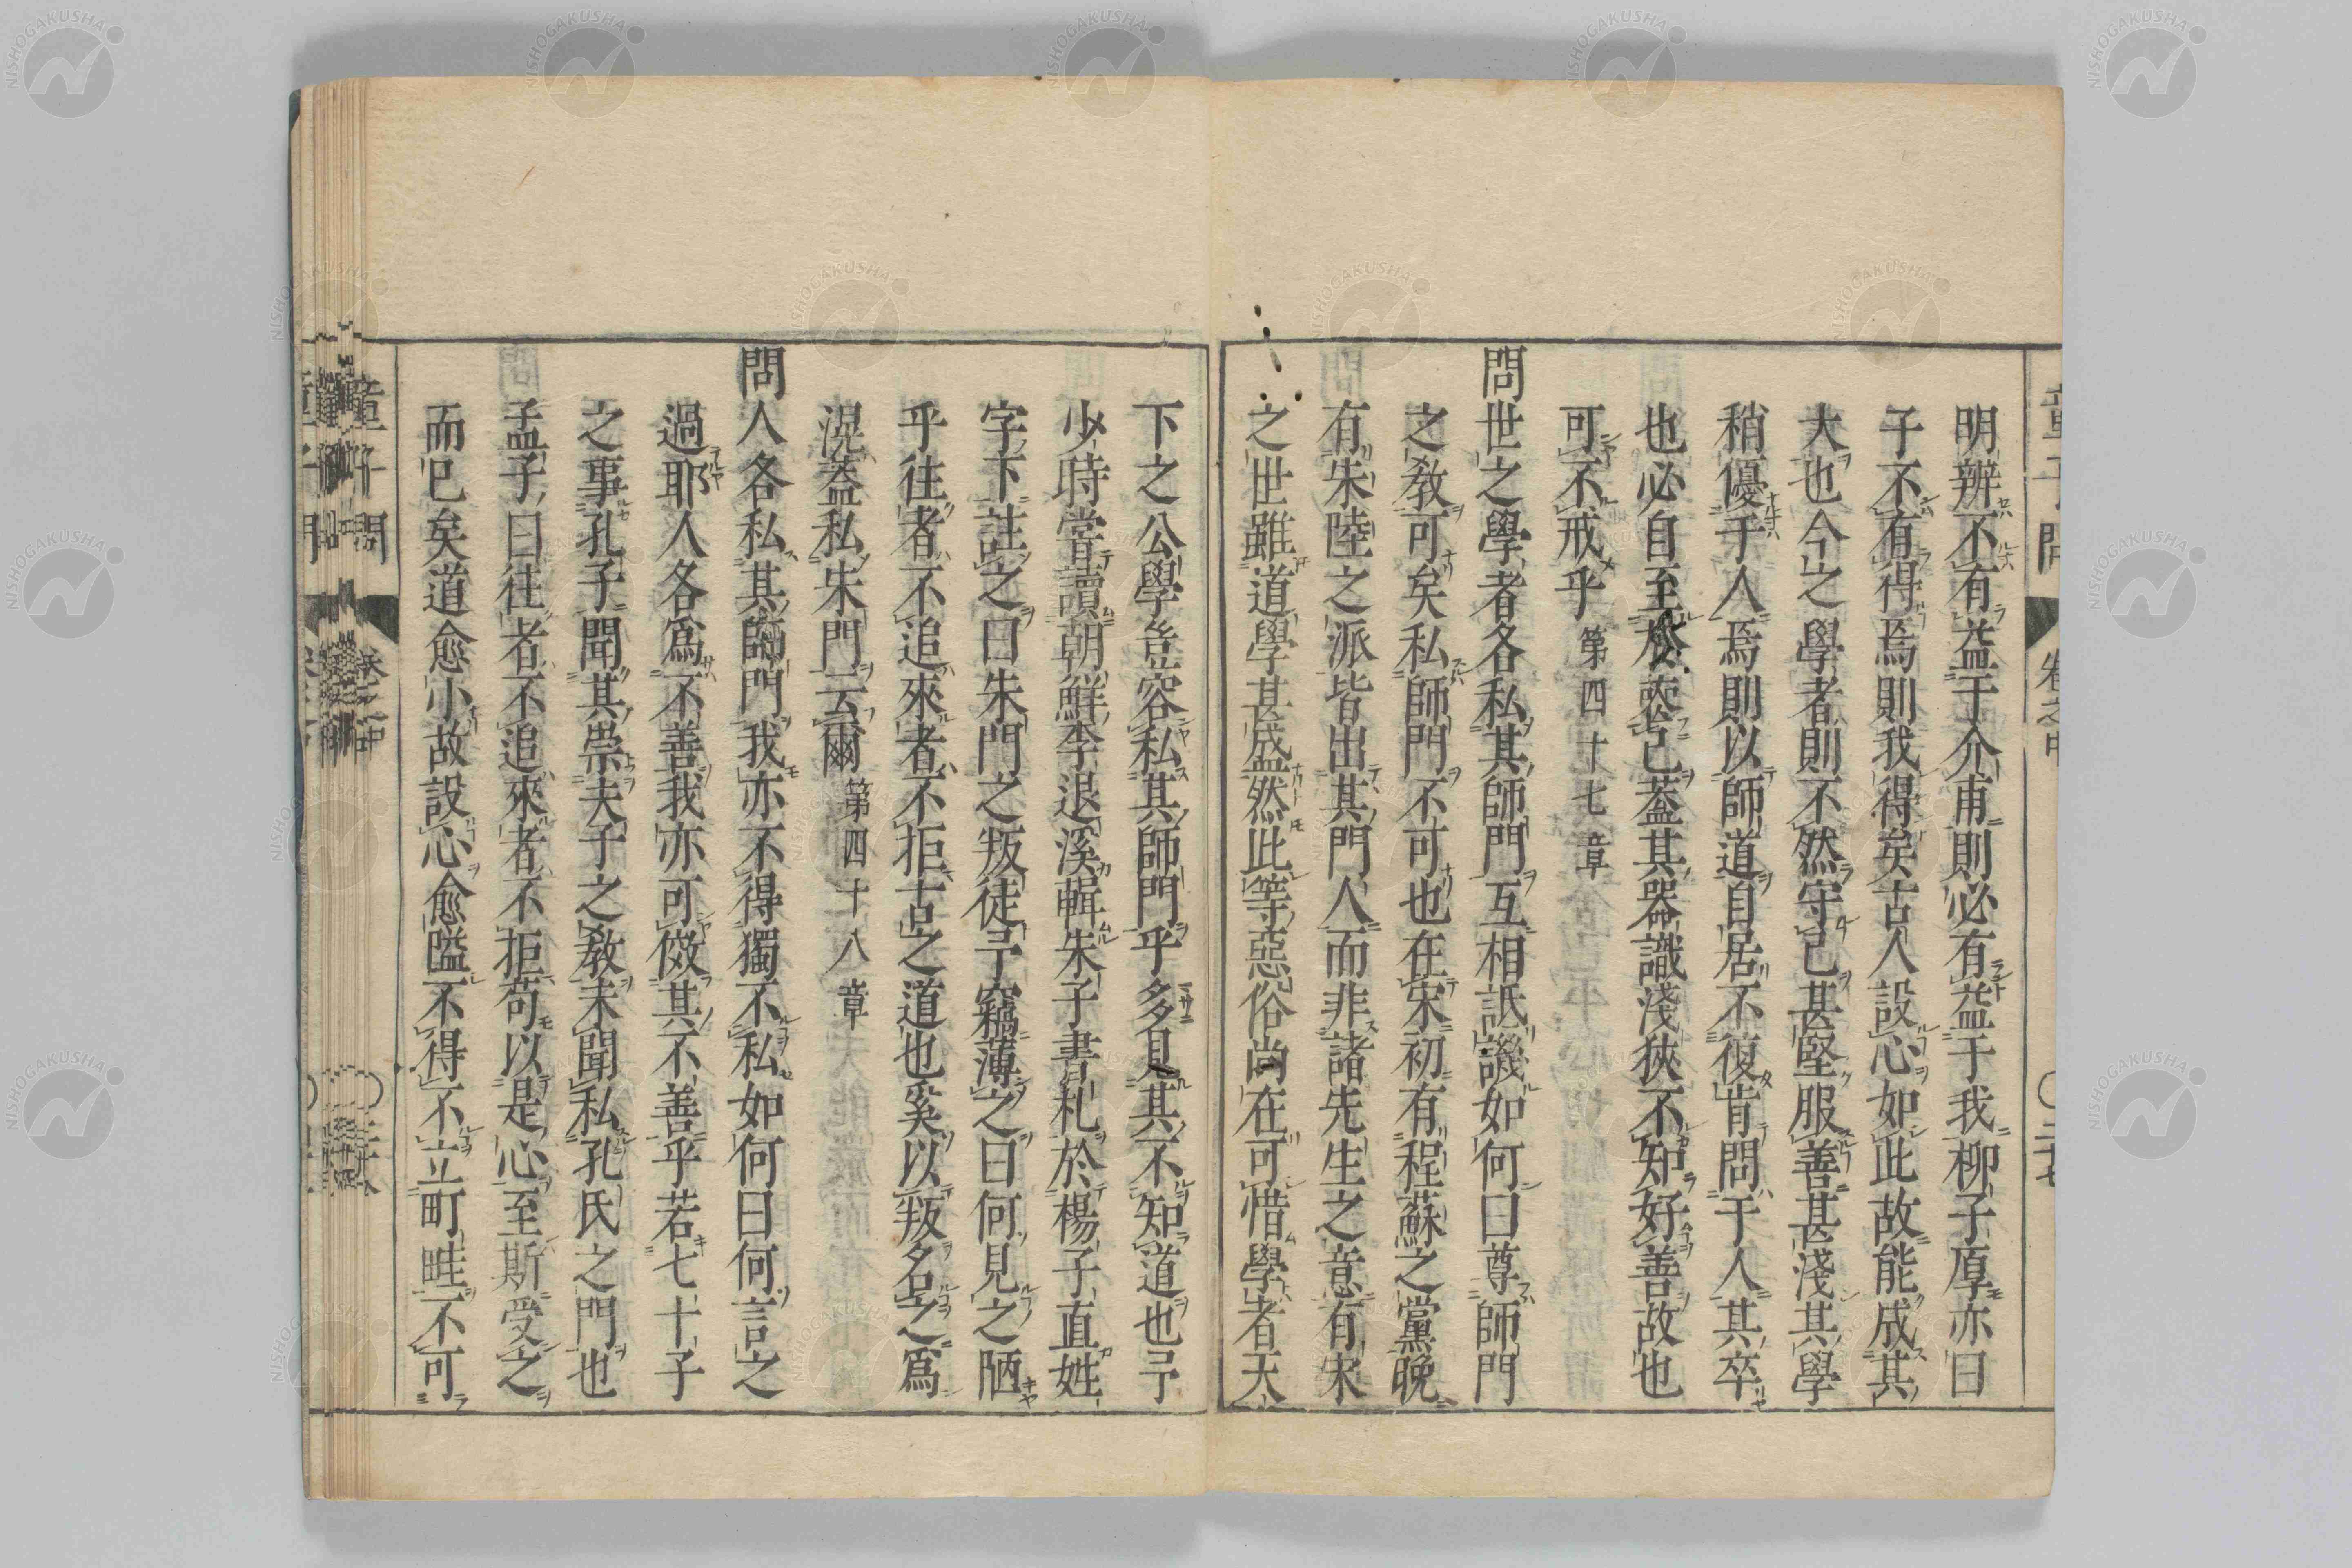 明辨不有益于介甫則必有益于我柳子厚亦曰
子不有得焉則我得矣古人設心如此故能成其
大也今之學者則不然守己甚堅服善甚淺其學
稍優于人焉則以師道自居不復肯問于人其卒
也必自至於棄己蓋其器識淺狹不知好善故也
可不戒乎 第四十七章
問世之學者各私其師門互相詆譏如何曰尊師門
之教可矣私師門不可也在宋初有程蘇之黨晚
有朱陸之派皆出其門人而非諸先生之意有宋
之世雖道學甚盛然此等惡俗尚在可惜學者天
下之公學豈容私其師門乎多見其不知道也予
少時嘗讀朝鮮李退溪輯朱子書札於楊子直姓
字下註之曰朱門之叛徒予竊薄之曰何見之陋
乎往者不追來者不拒古之道也奚以叛名之爲
況蓋私朱門云爾 第四十八章
問人各私其師門我亦不得獨不私如何曰何言之
過耶人各爲不善我亦可傚其不善乎若七十子
之事孔子聞其崇夫子之教未聞私孔氏之門也
孟子曰往者不追來者不拒苟以是心至斯受之
而已矣道愈小故設心愈隘不得不立町畦不可
童子問 卷之中